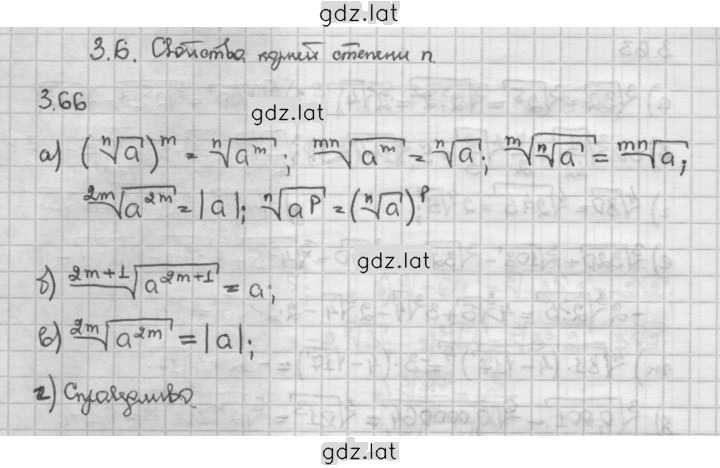 gdz.lat
3.6. Свойства корней степени n
3.66
gdz.lat
а) (ⁿ√a)ᵐ = ⁿ√(aᵐ); ᵐⁿ√(aᵐ) = ⁿ√a; ᵐ√(ⁿ√a) = ᵐⁿ√a;
²ᵐ√(a²ᵐ) = |a|; ⁿ√(aᵖ) = (ⁿ√a)ᵖ
gdz.lat
б) ²ᵐ⁺¹√(a²ᵐ⁺¹) = a;
в) ²ᵐ√(a²ᵐ) = |a|;
г) Справедливо.
gdz.lat